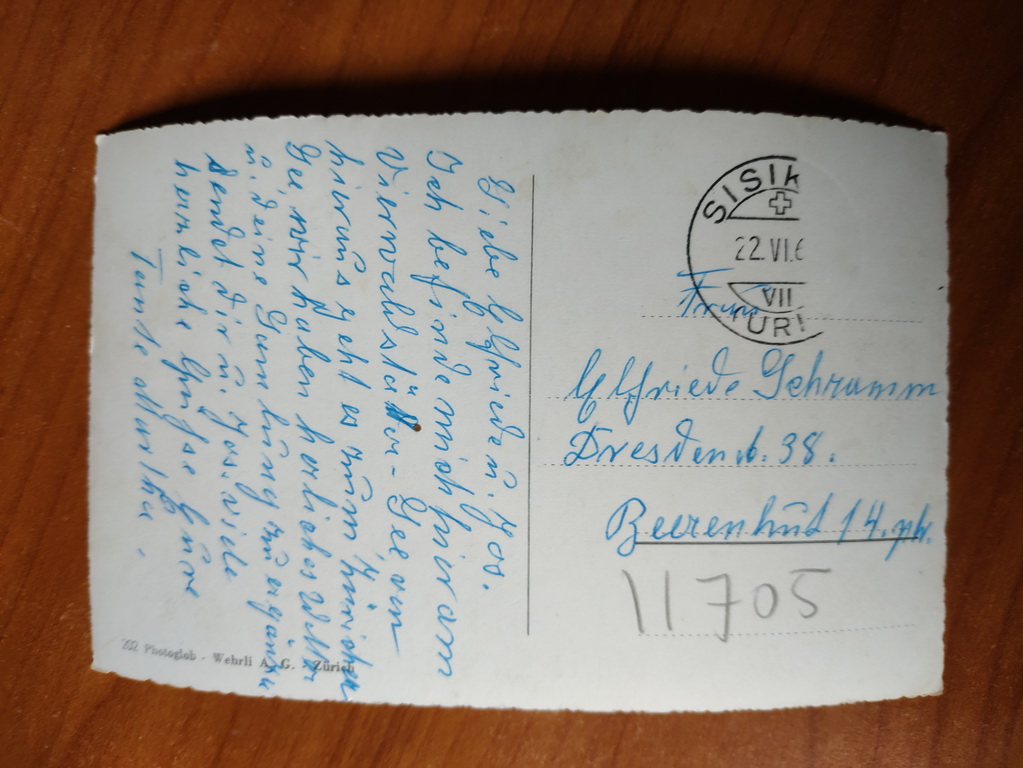 Liebe Elfriede u. Jos.
Ich befinde mich hier am
Vierwaldstätter-See von
hieraus geht es zum Zürichsee
Wir haben herrliches Wetter
u. Deine
sendet dir u. Jos viele
herzliche Grüsse Eure
Tante Martha.
Z32 Photoglob - Wehrli A. G. - Zürich
SISIK
22.VI.6
VII
URI
Frau
Elfriede Schramm
Dresden A. 38.
Beerenhut 14. ptr.
11705